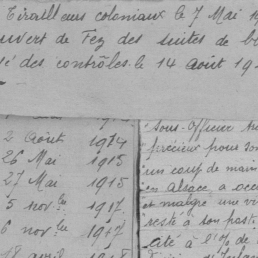 Tirailleurs coloniaux le 7 Mai 1
ouvert de Fez des suites de bl
é des contrôles le 14 Août 19
2 Août 1914
26 Mai 1915
27 Mai 1915
5 nov bre 1917
6 nov bre 1917
18 avril 1918
sous-officier
précieux pour son
un coup de main
en Alsace, a occu
et malgré une vi
resté à son post
Cité à l'O. de